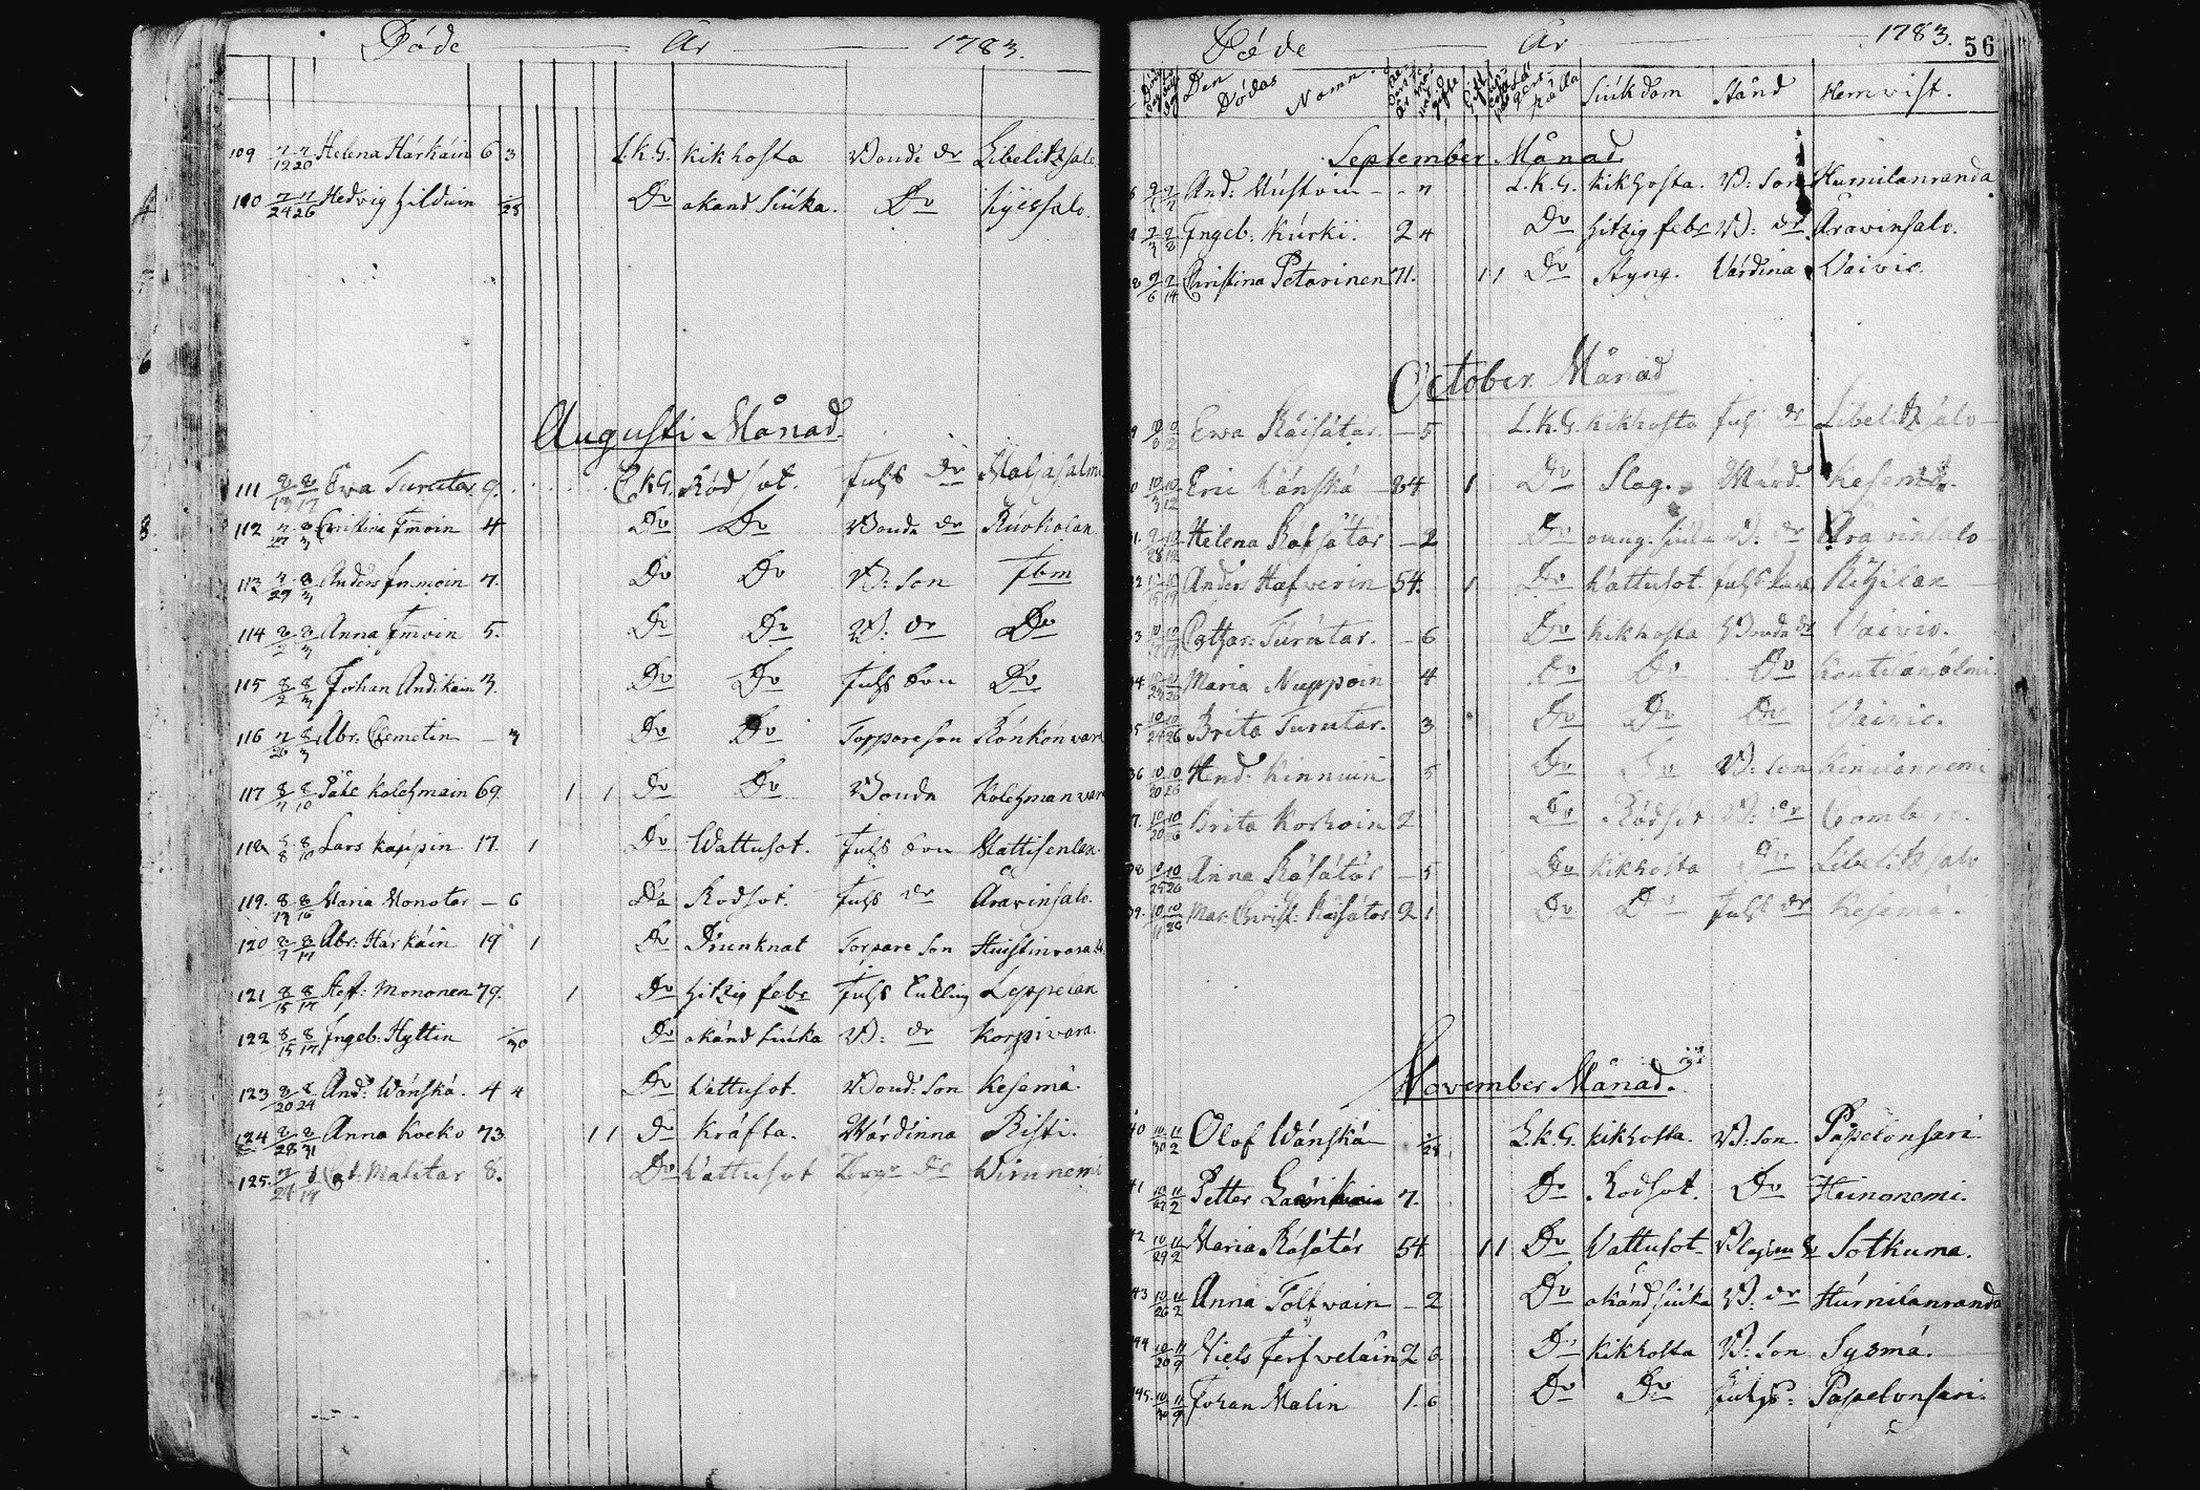 Döde År 1783.
109 7/19 7/20 Helena Härkäin 6 3 L.K.G. Kikhosta Bonde dr Libelitzsalo
110 7/24 7/26 Hedvig Hilduin /25 Do okänd Siuka. Do
Augusti Månad
111 8/13 8/17 Eva Turutar 9. L.K.G. Rödsot. Inhs dr
112 8/3 Christina Immoin 4 Do Do Bonde dr Ruokolax
113 7/29 8/3 Anders Immoin 7. Do Do B: Son Ibm
114 8/2 8/3 Anna Immoin 5. Do Do B: dr Do
115 8/2 8/3 Johan Andikain 3. Do Do Inhs Son Do
116 7/26 8/3 Abr: Clemetin – 3 Do Do Torpare son Könkönvara
117 8/7 8/10 Påhl Kolehmain 69. 1 1 Do Do Bonde Kolehmanvara
118 8/8 8/10 Lars Kappin 17. 1 Do Wattusot. Inhs Son Mattisenlax
119. 8/13 8/16 Maria Monotar – 6 Do Rodsot. Inhs dr Aravinsalo.
120 8/7 8/17 Abr: Härkäin 19 1 Do Drunknat Torpare Son
121 8/15 8/17 Mononen 79. 1 Do Hitzig febr Inhs Enkling Leppelax
122 8/15 8/17 Ingeb: Hyttin /30 Do okänd Siuka B: dr Korpivara.
123 8/20 8/24 And: Wänskä. 4 4 Do Wattusot. Bond: Son Kesemä.
124 8/28 8/31 Anna Kocko 73 1 1 Do Kräfta. Wärdinna Risti.
125. 7/24 8/17 Cat: Malitar 8. Do Wattusot dr
Döde År 1783. 56
Den Dödas Namn. Siukdom Stånd Hemvist.
September Månad
And: 7 L.K.G. Kikhosta. B: Son
Ingeb: Kurki. 2 4 Do Hitzig febr B: dr Aravinsalo.
9/6 9/14 Christina Petarinen 71. 1 1 Do Styng. Värdina Vaivio.
October Månad
Ewa Räisätar. – 5 L.K.G. Kikhosta Inhs dr Libelitzsalo
10/3 10/12 Eric Wänskä 84 1 Do Slag. Wärd. Kesemä.
9/28 10/12 Helena – 2 Do B: dr Aravinsalo
Anders Hafverin 54. 1 Do Wattusot.
Cathar: Turutar. – 6 Do Kikhosta Bonde dr Vaivio.
Maria Nuppoin 4 Do Do Do Kontilansalmi.
10/24 10/26 Brita Turutar. 3 Do Do Do Vaivio.
10/20 10/26 Hend: Kinnuin 5 Do Do B: Son
10/20 10/26 Brita Korhoin 2 Do Rödsot B: dr
10/25 10/26 Anna Räsätär – 5 Do Kikhosta Do Libelitzsalo
Mar: Christ: Räisätar 2 1 Do Do Inhs dr Kesemä.
November Månad.
10/30 11/2 Olof Wänskä /28 L.K.G. Kikhosta. B: Son Papelonsari
11/2 Petter 7. Do Rodsot. Do Heinonemi.
10/29 11/2 Maria Räsätär 54 1 1 Do Wattusot. Sotkuma.
10/26 11/2 Anna Tolfvain – 2 Do okändsiuka B: dr Hurnilanranda
10/20 11/9 Niels Jerfveläin 2 6 Do Kikhosta B: Son Sysmä.
10/30 11/9 Johan Malin 1. 6 Do Do Papelonsari.